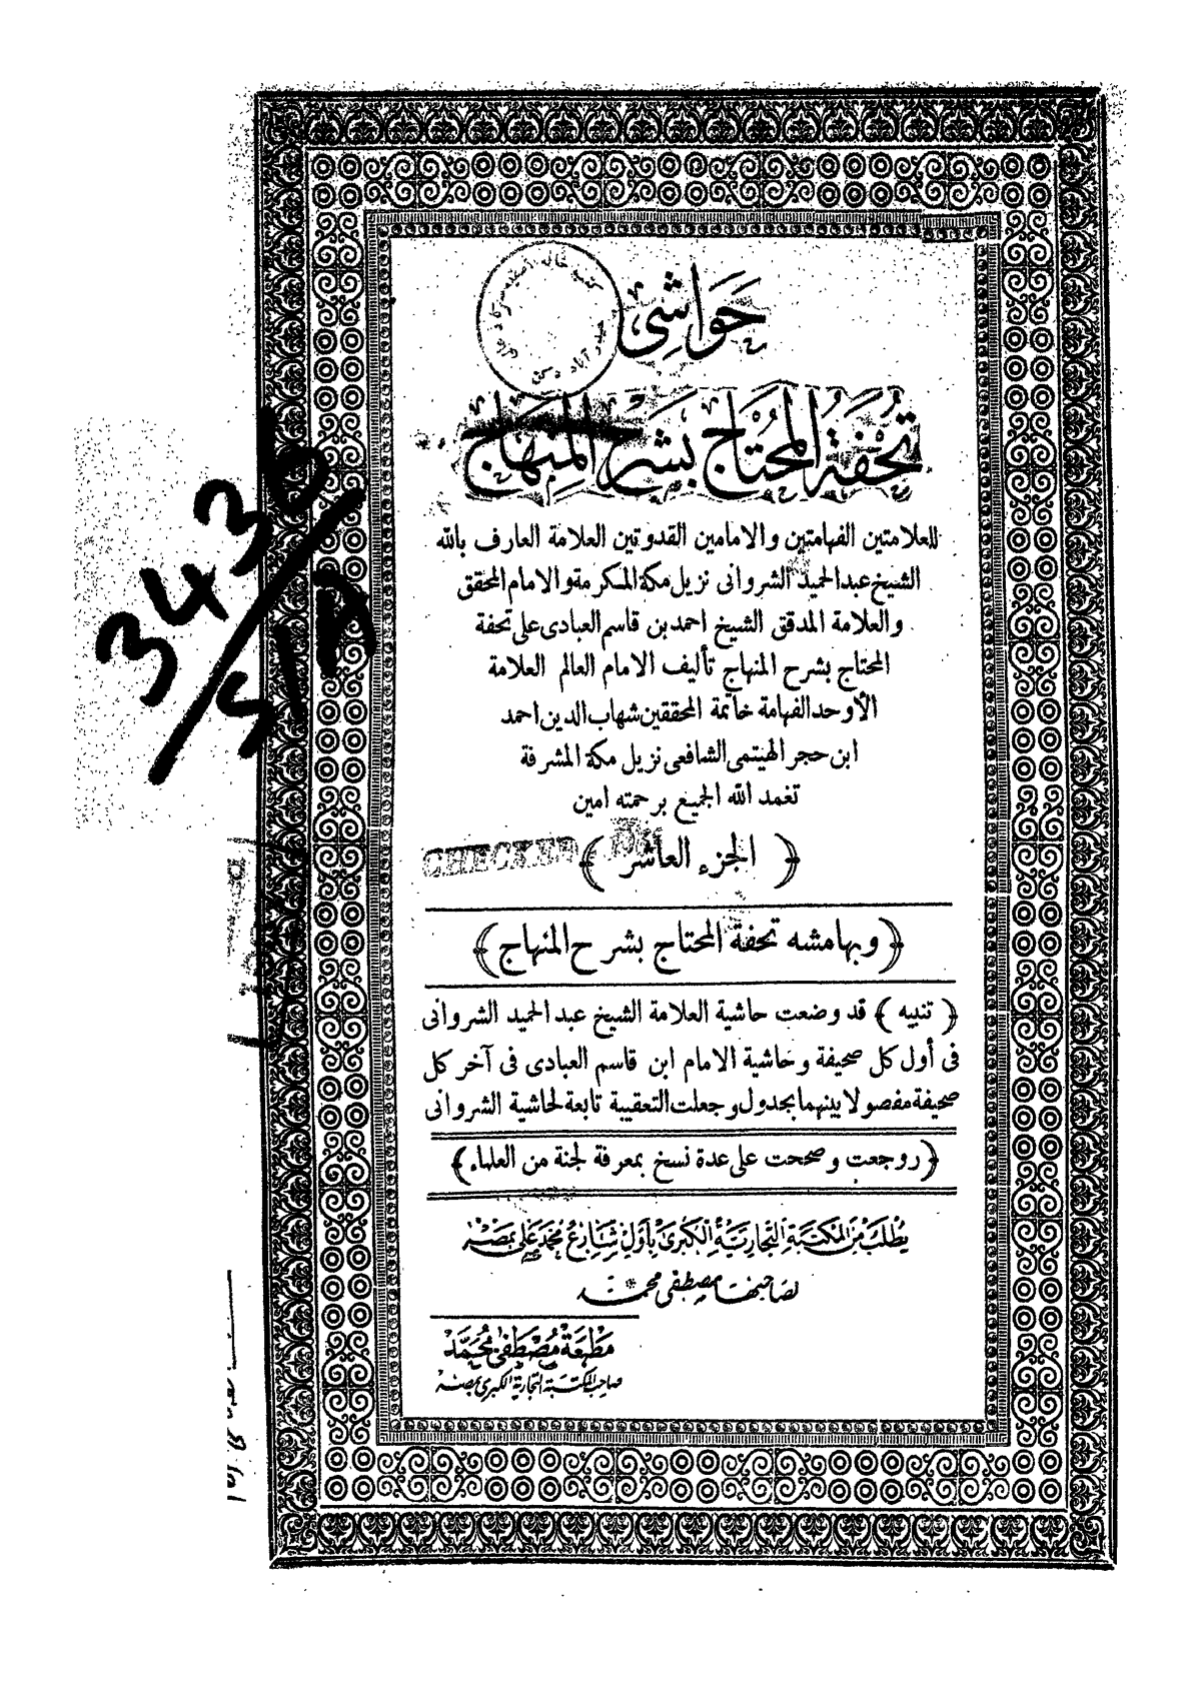 حَوَاشِي
تُحْفَةُ المُحْتَاج بِشَرْحِ المِنْهَاج
للعلامتين الفهامتين والامامين القدوتين العلامة العارف بالله
الشيخ عبد الحميد الشرواني نزيل مكة المكرمة والامام المحقق
والعلامة المدقق الشيخ احمد بن قاسم العبادى على تحفة
المحتاج بشرح المنهاج تأليف الامام العالم العلامة
الأوحد الفهامة خاتمة المحققين شهاب الدين احمد
ابن حجر الهيتمى الشافعى نزيل مكة المشرفة
تغمد الله الجميع برحمته امين
CHECKED
﴿ الجزء العاشر ﴾
﴿ وبهامشه تحفة المحتاج بشرح المنهاج ﴾
﴿ تنبيه ﴾ قد وضعت حاشية العلامة الشيخ عبد الحميد الشروانى
فى أول كل صحيفة وحاشية الامام ابن قاسم العبادى فى آخر كل
صحيفة مفصولا بينهما بجدول وجعلت التعقيبة تابعة لحاشية الشروانى
﴿ روجعت وصححت على عدة نسخ بمعرفة لجنة من العلماء ﴾
يُطْلَبُ مِنَ المَكْتَبَةِ التِّجَارِيَّةِ الكُبْرَى بِأَوَّلِ شَارِعِ مُحَمَّد عَلِى بِمِصْرَ
لصاحبها مصطفى محمد
مَطْبَعَة مُصْطَفَى مُحَمَّد
صاحب المكتبة التجارية الكبرى بمصر
حيدر آباد دكن
3436